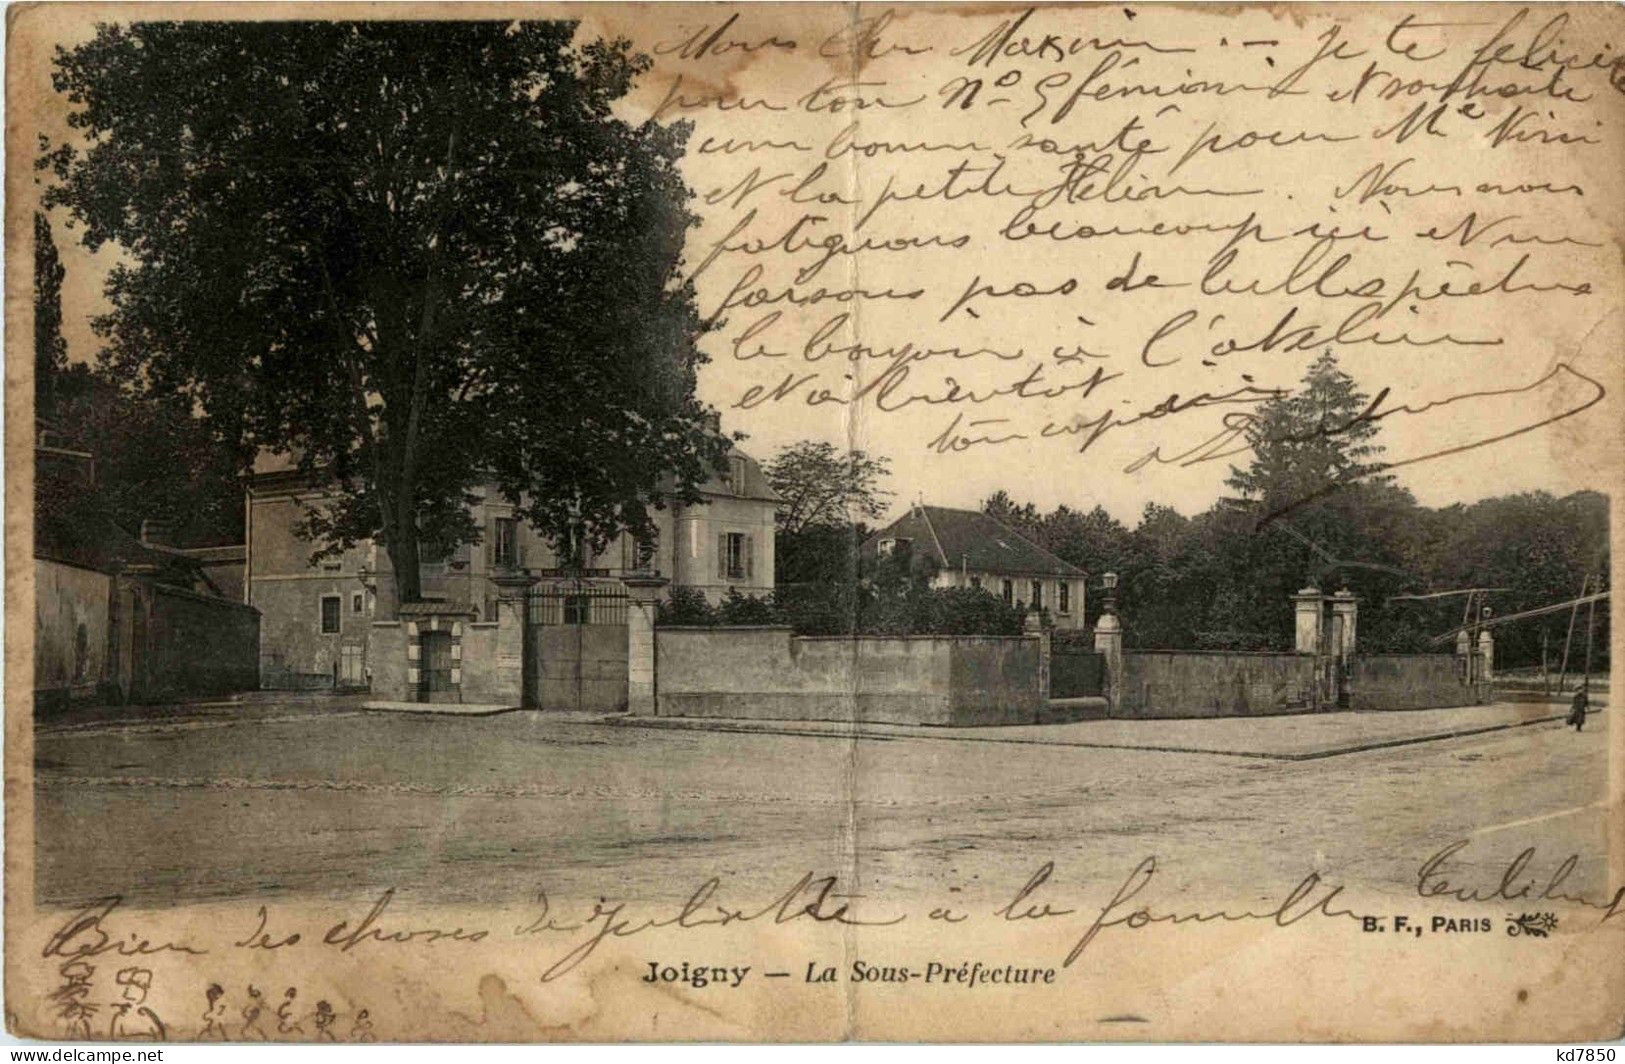 Mon cher Maxim. — Je te félicite
pour ton Nº 5 féminin et souhaite
une bonne santé pour Mᵉ Nini
et la petite Hélène. Nous nous
fatiguons beaucoup ici et ne
faisons pas de belles pêches
le à l'atelier
et à bientôt
ton copain
Bien des choses de Juliette à la famille
B. F., PARIS
Joigny — La Sous-Préfecture
kd7850
delcampe.net